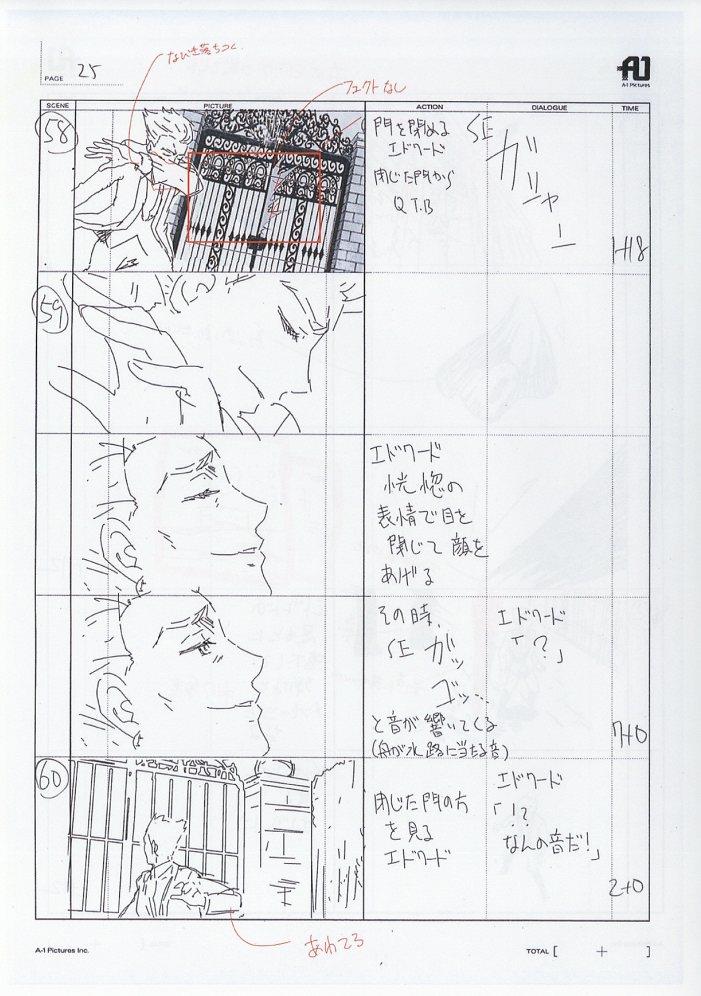 PAGE 25
A-1 Pictures
なびき落ちつく
フェクトなし
SCENE PICTURE ACTION DIALOGUE TIME
58
門を閉める
エドワード
閉じた門から
Q T.B
SE
ガシャーン
1+18
59
エドワード
恍惚の
表情で目を
閉じて顔を
あげる
その時、
SE ガッ
ゴッ…
と音が響いてくる
(舟が水路に当たる音)
エドワード
「?」
7+0
60
閉じた門の方
を見る
エドワード
エドワード
「!?
なんの音だ!」
2+0
A-1 Pictures Inc.
TOTAL [ + ]